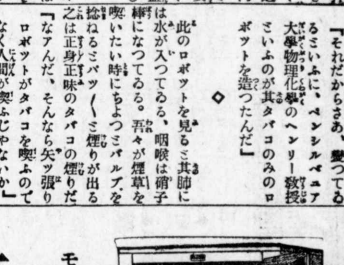 『それだからさ、變つてる
るといふに、ペンシルベニア
大學物理化學のヘンリー敎授
といふのが其タバコのみのロ
ボットを造つたんだ』
◇
此のロボットを見ると其肺に
は水が入つてゐる。咽喉は硝子
棒になつてゐる。吾々が煙草を
喫いたい時にちよつとバルブを
捻ねるとパッ〱と煙りが出る
之は正身正味のタバコの煙りだ
『なアんだ、そんなら矢ッ張り
ロボットがタバコを喫ふので
なく人間が喫ふじやないか』
モ